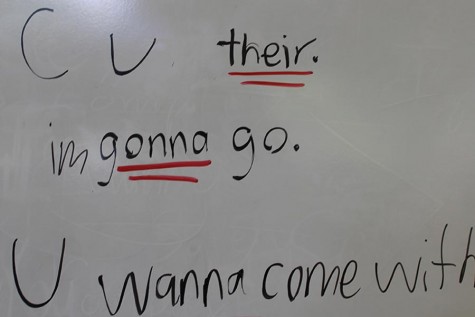 C U their.
im gonna go.
U wanna come with